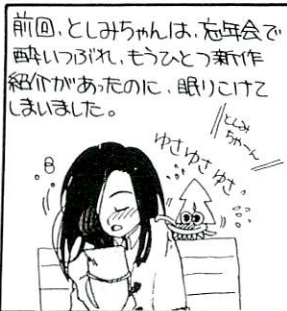 前回、としみちゃんは、忘年会で
酔いつぶれ、もうひとつ新作
紹介があったのに、眠りこけて
しまいました。
としみ
ちゃーん
ゆさゆさゆさ